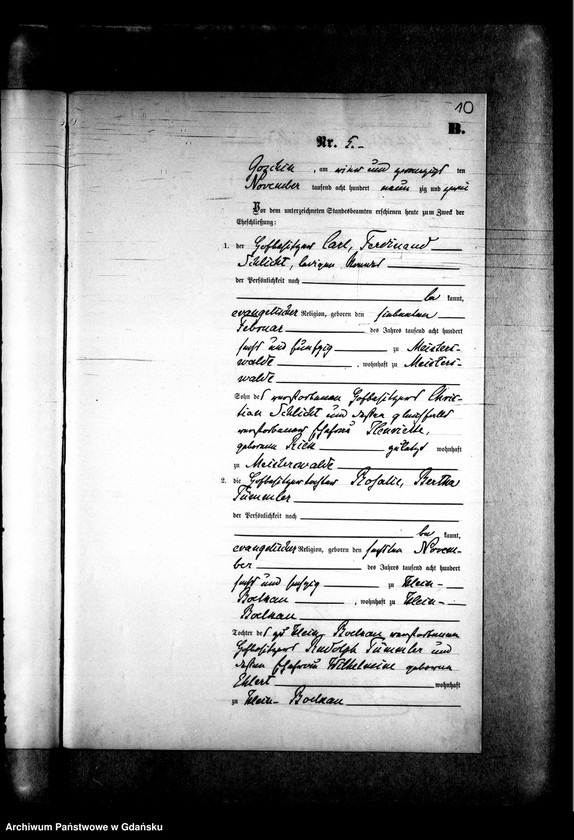 10
B.
Nr. 5.-
, am und zwanzigst ten
November tausend acht hundert neun zig und zwei
Vor dem unterzeichneten Standesbeamten erschienen heute zum Zweck der
Eheschließung:
1. der Hofbesitzer Carl, Ferdinand
Schlicht, ledigen Standes
der Persönlichkeit nach
be kannt,
evangelischer Religion, geboren den siebenten
Februar des Jahres tausend acht hundert
sechs und fünfzig zu Meisters-
walde , wohnhaft zu Meisters-
walde
Sohn des verstorbenen Hofbesitzers Chris-
tian Schlicht und dessen gleichfalls
verstorbenen Ehefrau Henriette,
geborenen zuletzt wohnhaft
zu Meisterswalde
2. die Hofbesitzertochter Rosalie, Bertha
Tümmler
der Persönlichkeit nach
be kannt,
evangelischer Religion, geboren den sechsten Novem-
ber des Jahres tausend acht hundert
sechs und sechzig zu Klein-
Boelkau , wohnhaft zu Klein-
Boelkau
Tochter des zu Klein- Boelkau verstorbenen
Hofbesitzers Rudolph Tümmler und
dessen Ehefrau Wilhelmine geborenen
Ehlert wohnhaft
zu Klein- Boelkau
Archiwum Państwowe w Gdańsku